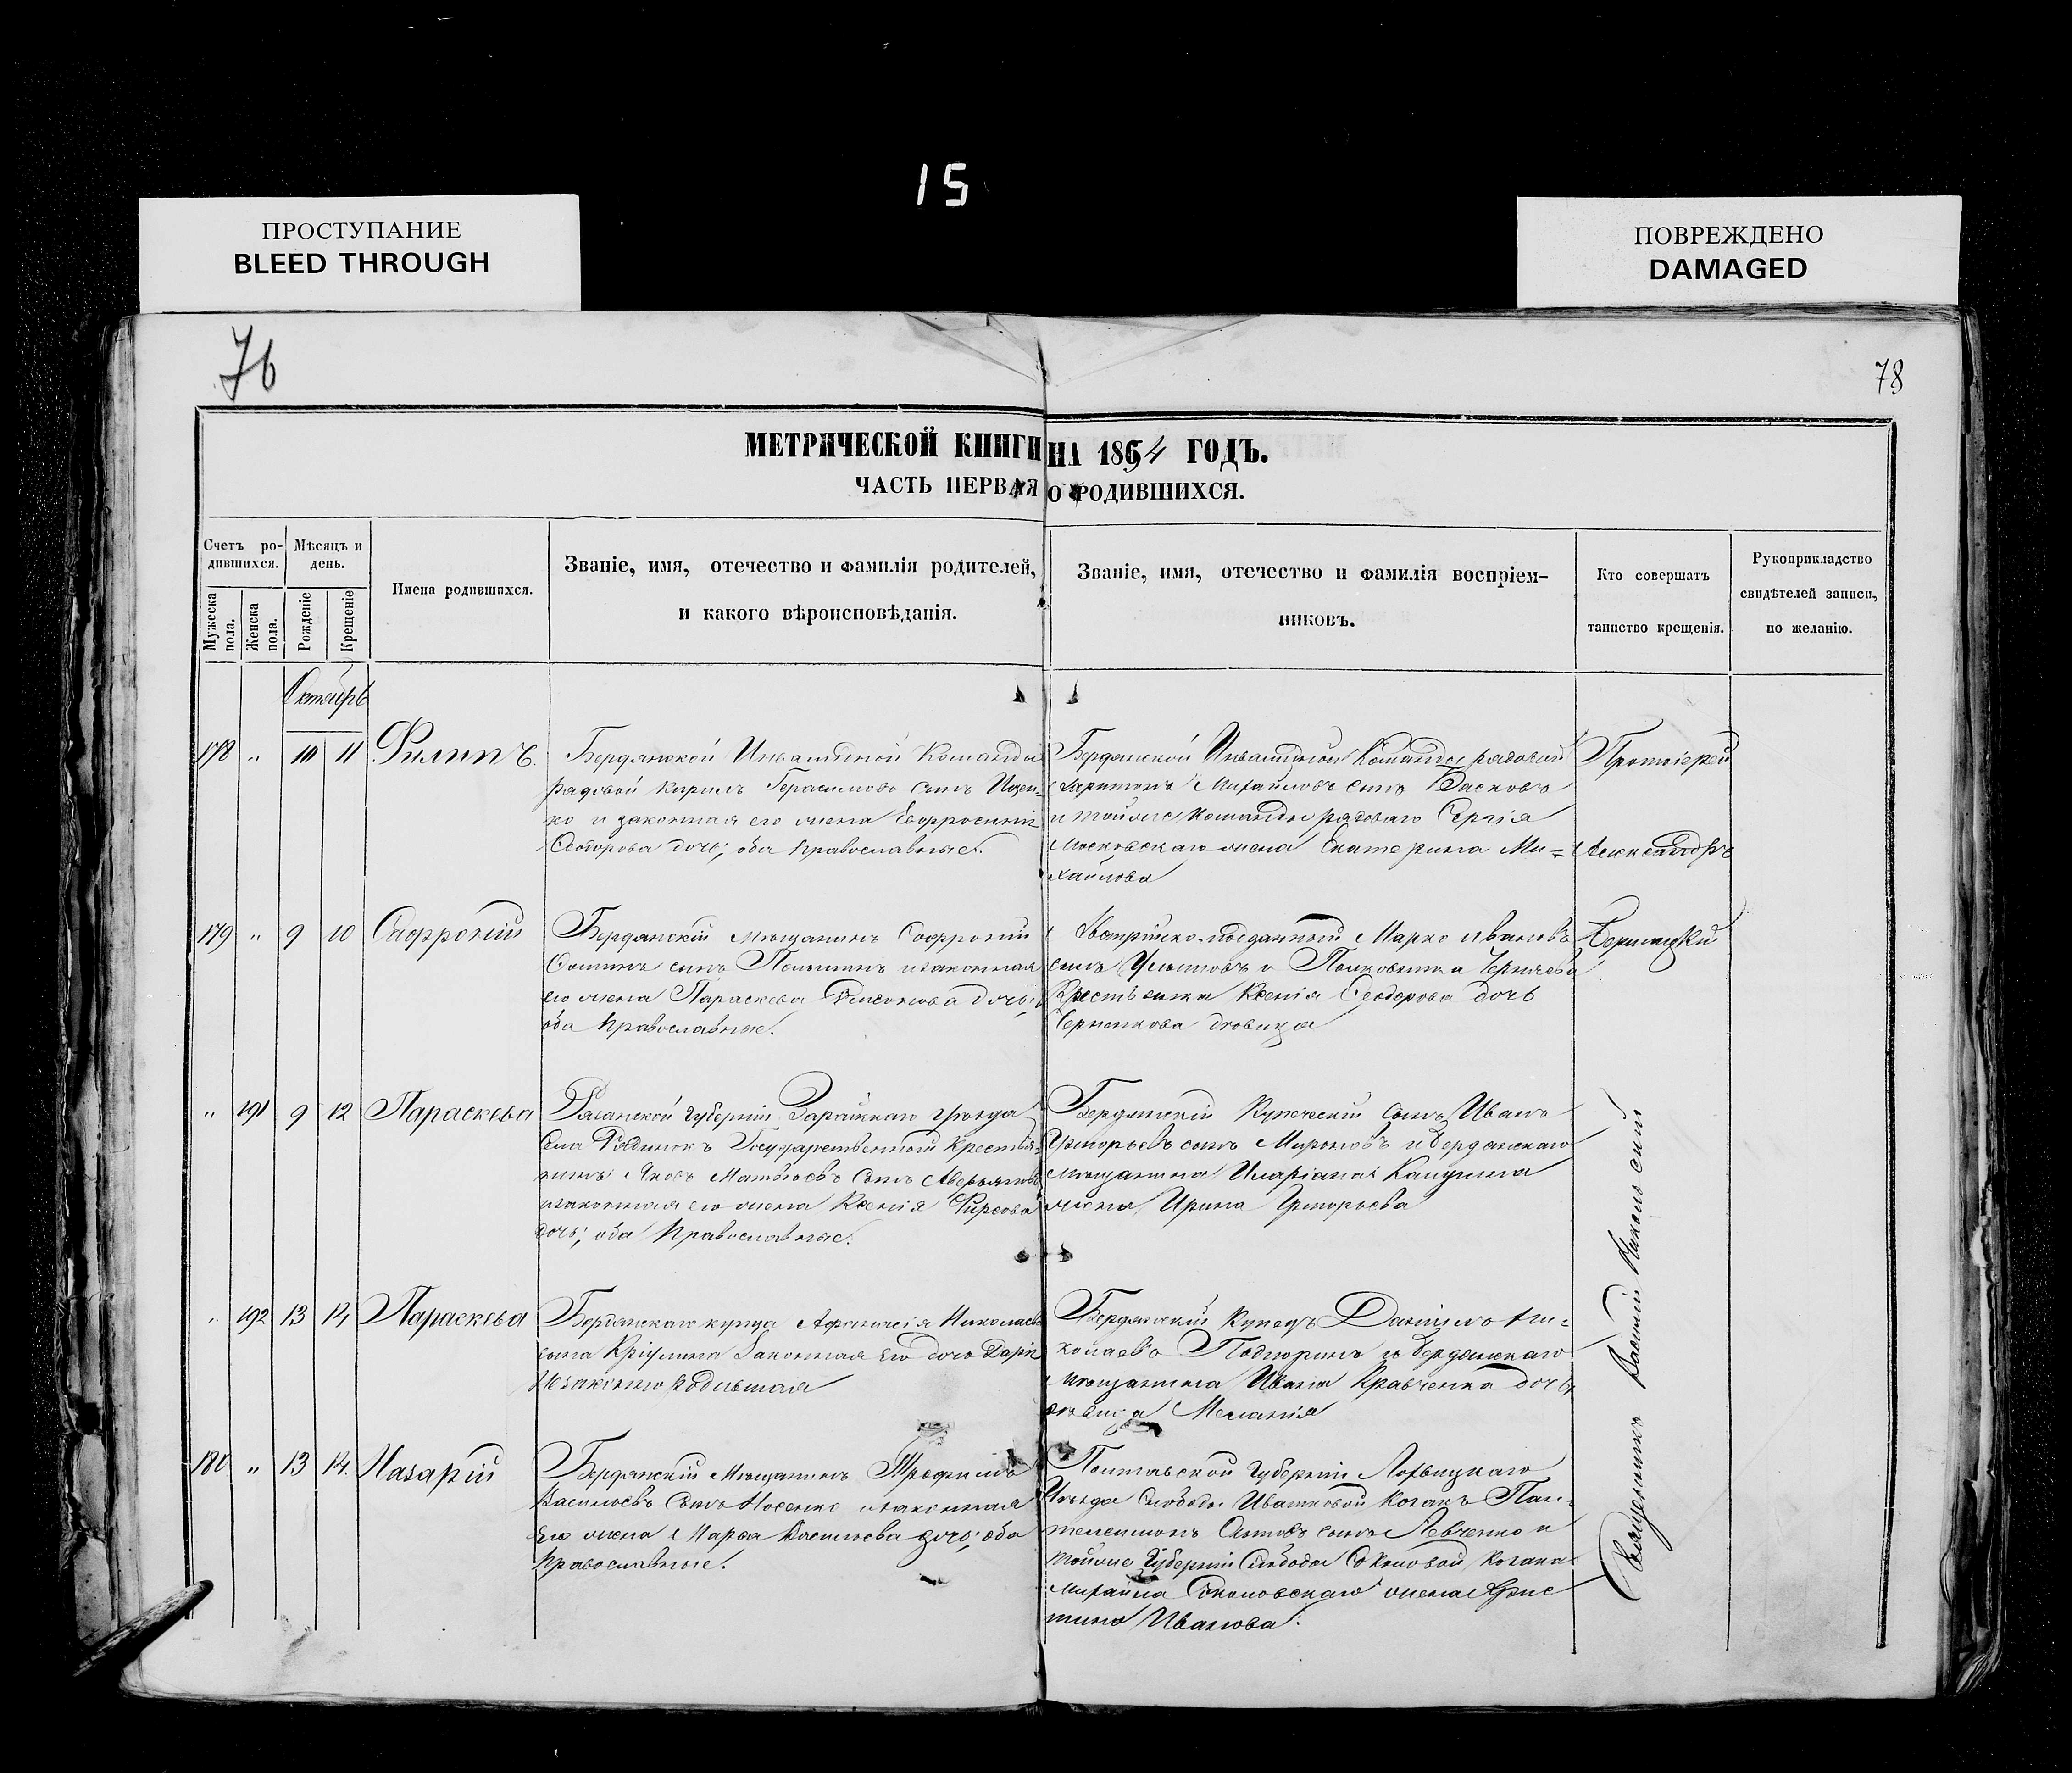 15
ПРОСТУПАНИЕ
BLEED THROUGH
ПОВРЕЖДЕНО
DAMAGED
76
78
МЕТРИЧЕСКОЙ КНИГИ НА 1864 ГОДЪ.
ЧАСТЬ ПЕРВАЯ О РОДИВШИХСЯ.
Счетъ ро-
дившихся.
Мужеска пола.
Женска пола.
Мѣсяцъ и
день.
Рожденіе
Крещеніе
Имена родившихся.
Званіе, имя, отечество и фамилія родителей,
и какого вѣроисповѣданія.
Званіе, имя, отечество и фамилія воспріем-
никовъ.
Кто совершатъ
таинство крещенія.
Рукоприкладство
свидѣтелей записи,
по желанію.
Октябрь
178 " 10 11 Филипъ.
Бердянской Инвалидной Команды
рядовой Кирилъ Герасимовъ сынъ Ищен-
ко и законная его жена Евфросинія
Ѳеодорова дочь; оба православные.
Бердянской Инвалидной Команды рядовой
Харитонъ Михайловъ сынъ Васковъ
и тойже Команды рядоваго Сергія
Московскаго жена Екатерина Ми=
хаилова
Протоіерей
Александръ
179 " 9 10 Софроній
Бердянскій мѣщанинъ Софроній
Ѳоминъ сынъ и законная
его жена Параскева дочь;
оба православные.
Австрійско-подданный Марко Ивановъ
сынъ и Полковника Черняева
Крестьянка Ксенія Ѳеодорова дочь
Черненкова дѣвица
" 191 9 12 Параскева
Рязанской губерніи Зарайскаго уѣзда
села Государственный Крестья-
нинъ Яковъ Матвѣевъ сынъ Аверьяновъ
и законная его жена Ксенія Фирсова
дочь; оба православные.
Бердянскій Купеческій сынъ Иванъ
Григорьевъ сынъ Мироновъ и бердянскаго
мѣщанина Иларіана
жена Ирина Григорьева
" 192 13 14 Параскева
Бердянскаго купца Афанасія Николаева
сына законная его дочь Дарія
незаконно родившая
Бердянскій Купецъ Даніилъ Ни=
колаевъ и бердянскаго
мѣщанина Ивана Кравченка дочь
дѣвица Меланія
180 " 13 14. Назарій
Бердянскій Мѣщанинъ Трофимъ
Васильевъ сынъ Носенко и законная
его жена Марѳа Васильева дочь; оба
православные.
Полтавской губерніи Лохвицкаго
уѣзда слободы Ивановой Козакъ Пан-
телеимонъ сынъ Левченко и
тойже губерніи слободы Козака
Михаила Соколовскаго жена Хрис
тина Иванова.
Священникъ Василій Никольскій